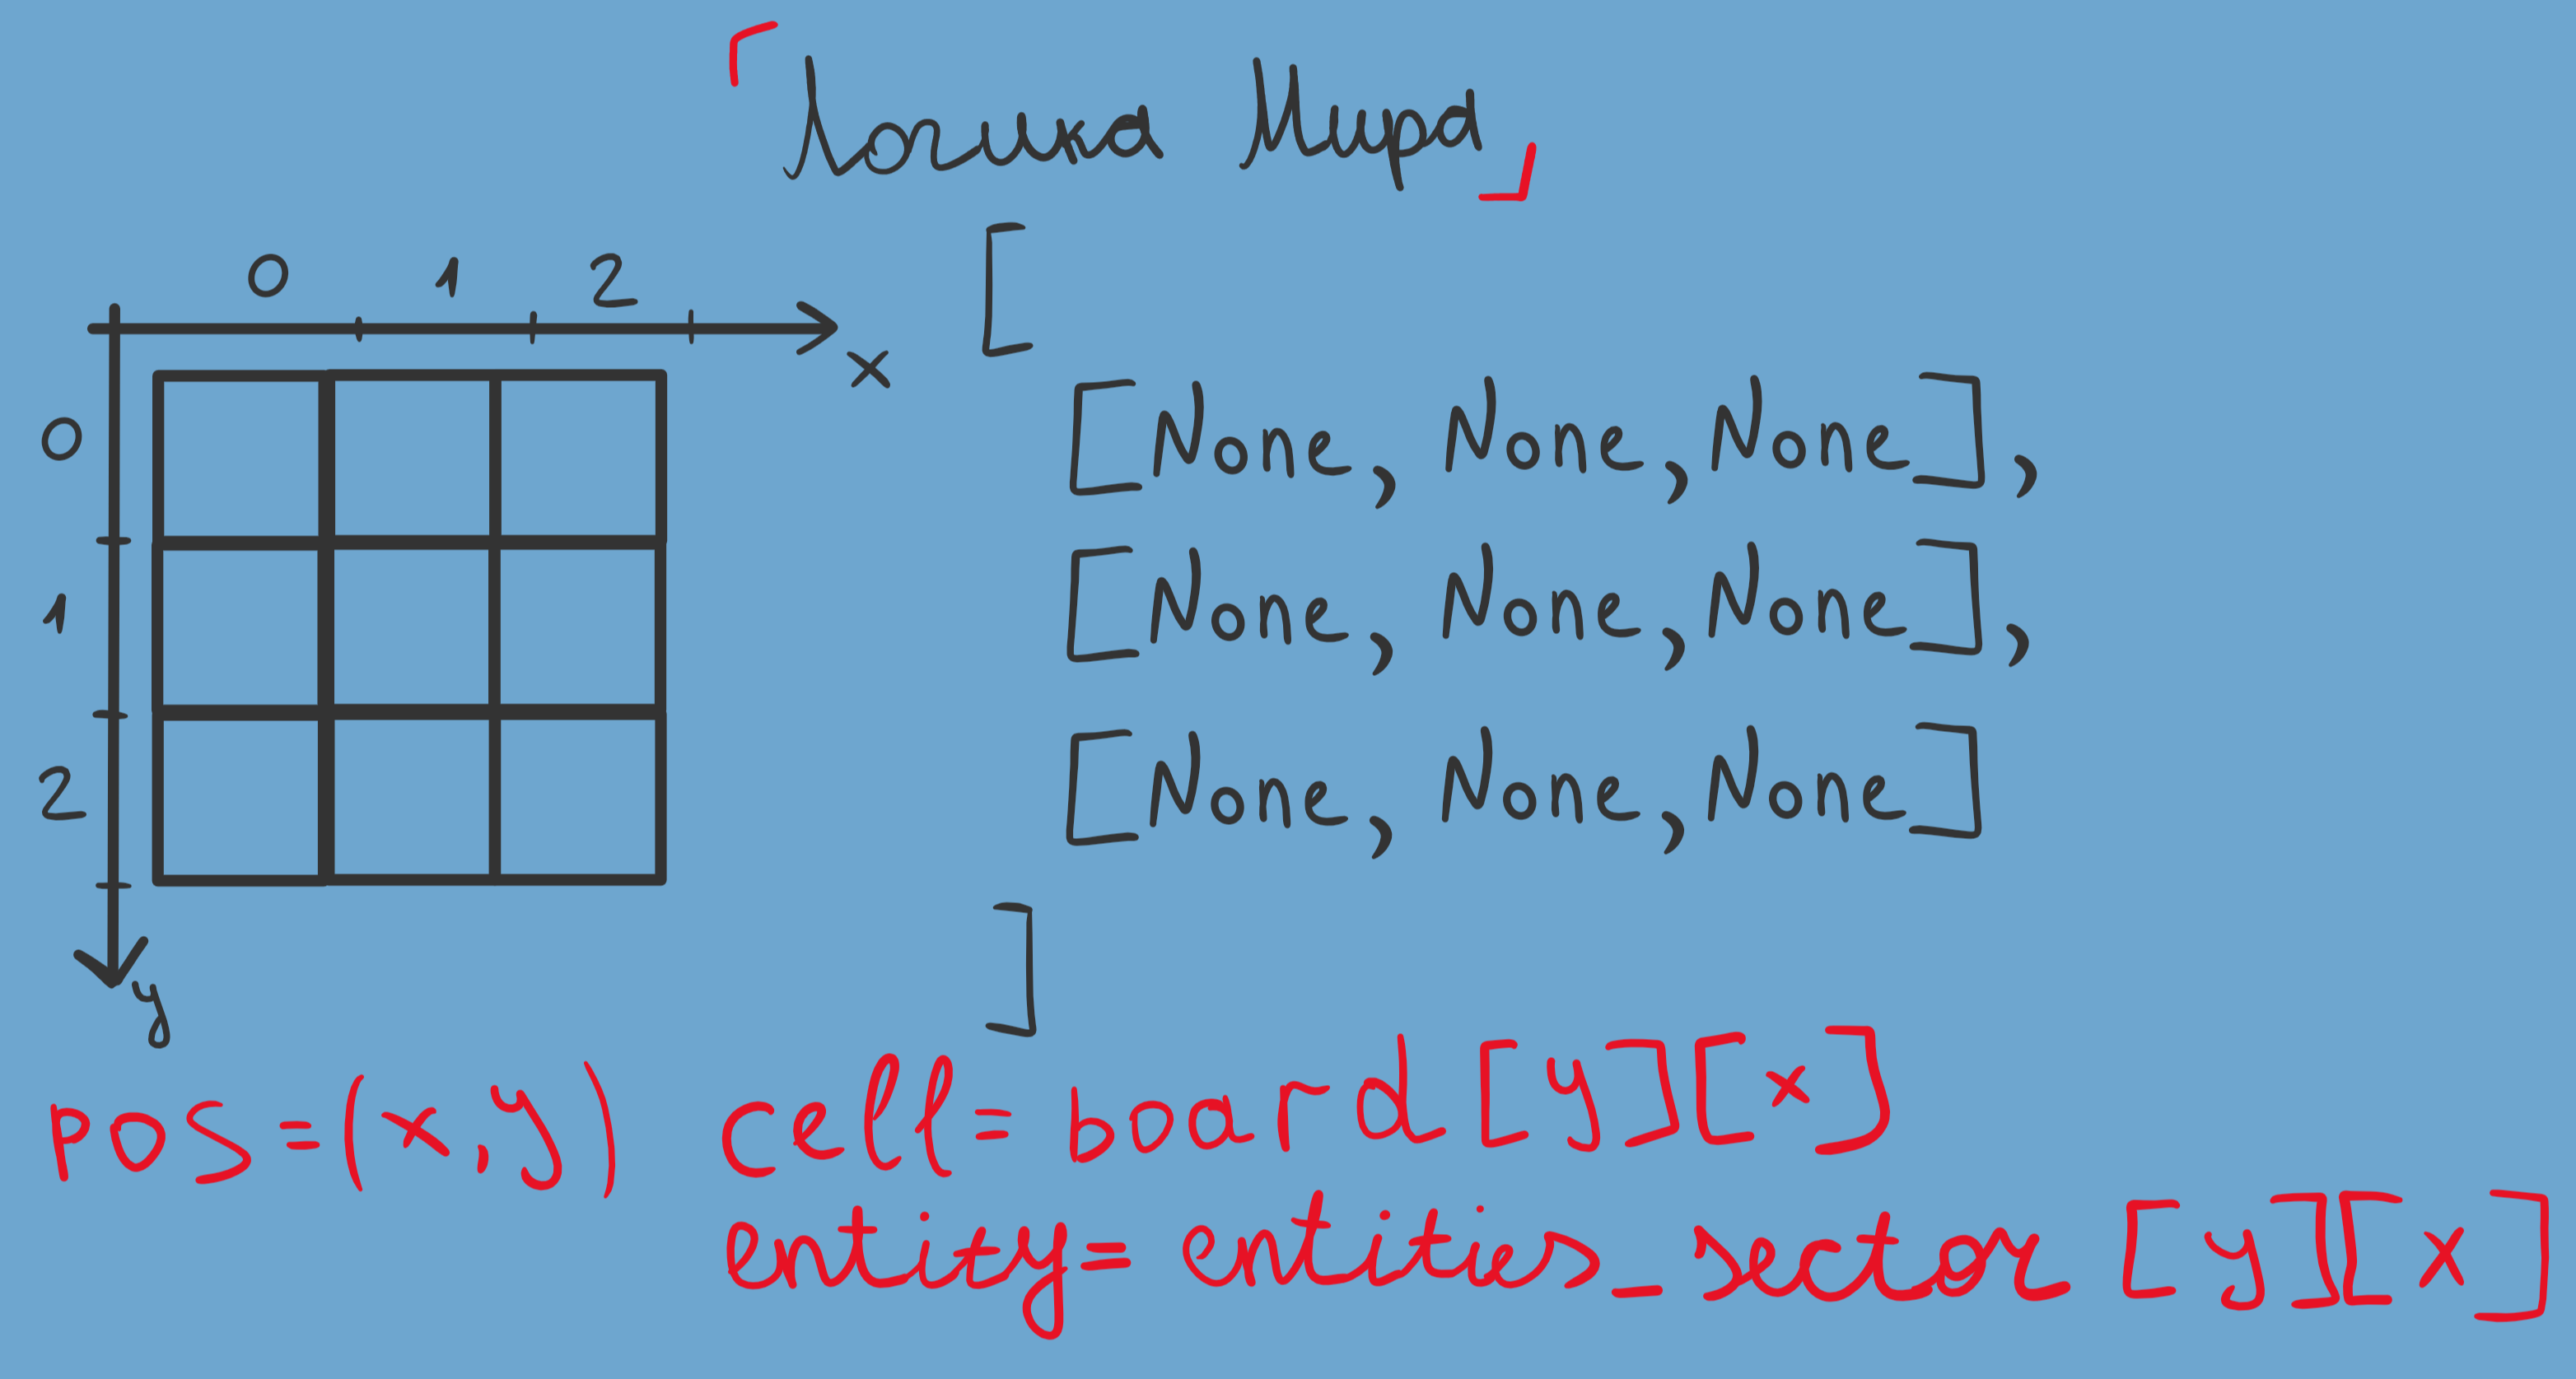 「Логика Мира」
0 1 2
x
0
1
2
y
[
[None, None, None],
[None, None, None],
[None, None, None]
]
pos=(x,y) cell=board[y][x]
entity=entities_sector[y][x]